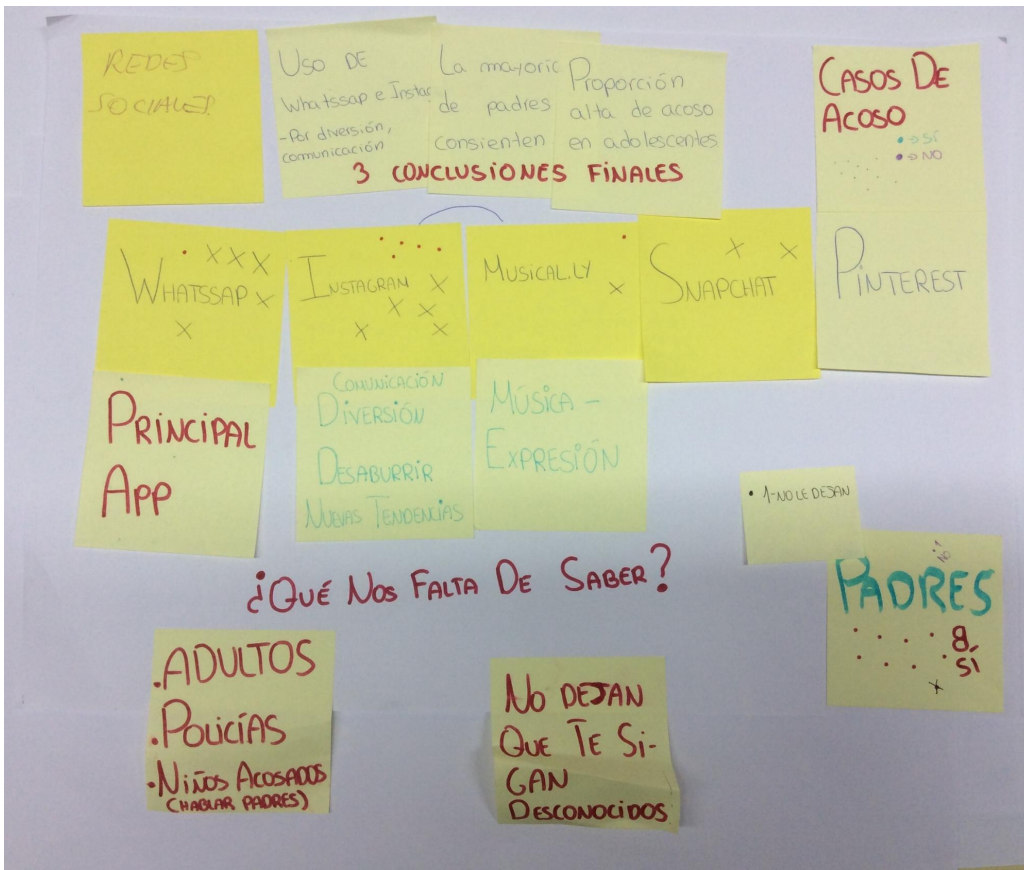 REDES
SOCIALES
USO DE
Whatssap e Instag
-Por diversión,
comunicación
La mayoric
de padres
consienten
Proporción
alta de acoso
en adolescentes
3 CONCLUSIONES FINALES
CASOS DE
ACOSO
• → SÍ
• → NO
WHATSSAP
INSTAGRAM
MUSICAL.LY
SNAPCHAT
PINTEREST
PRINCIPAL
APP
COMUNICACIÓN
DIVERSIÓN
DESABURRIR
NUEVAS TENDENCIAS
MÚSICA -
EXPRESIÓN
• 1-NO LE DEJAN
¿QUÉ NOS FALTA DE SABER?
PADRES
8
SÍ
.ADULTOS
.POLICÍAS
.NIÑOS ACOSADOS
(HABLAR PADRES)
NO DEJAN
QUE TE SI-
GAN
DESCONOCIDOS